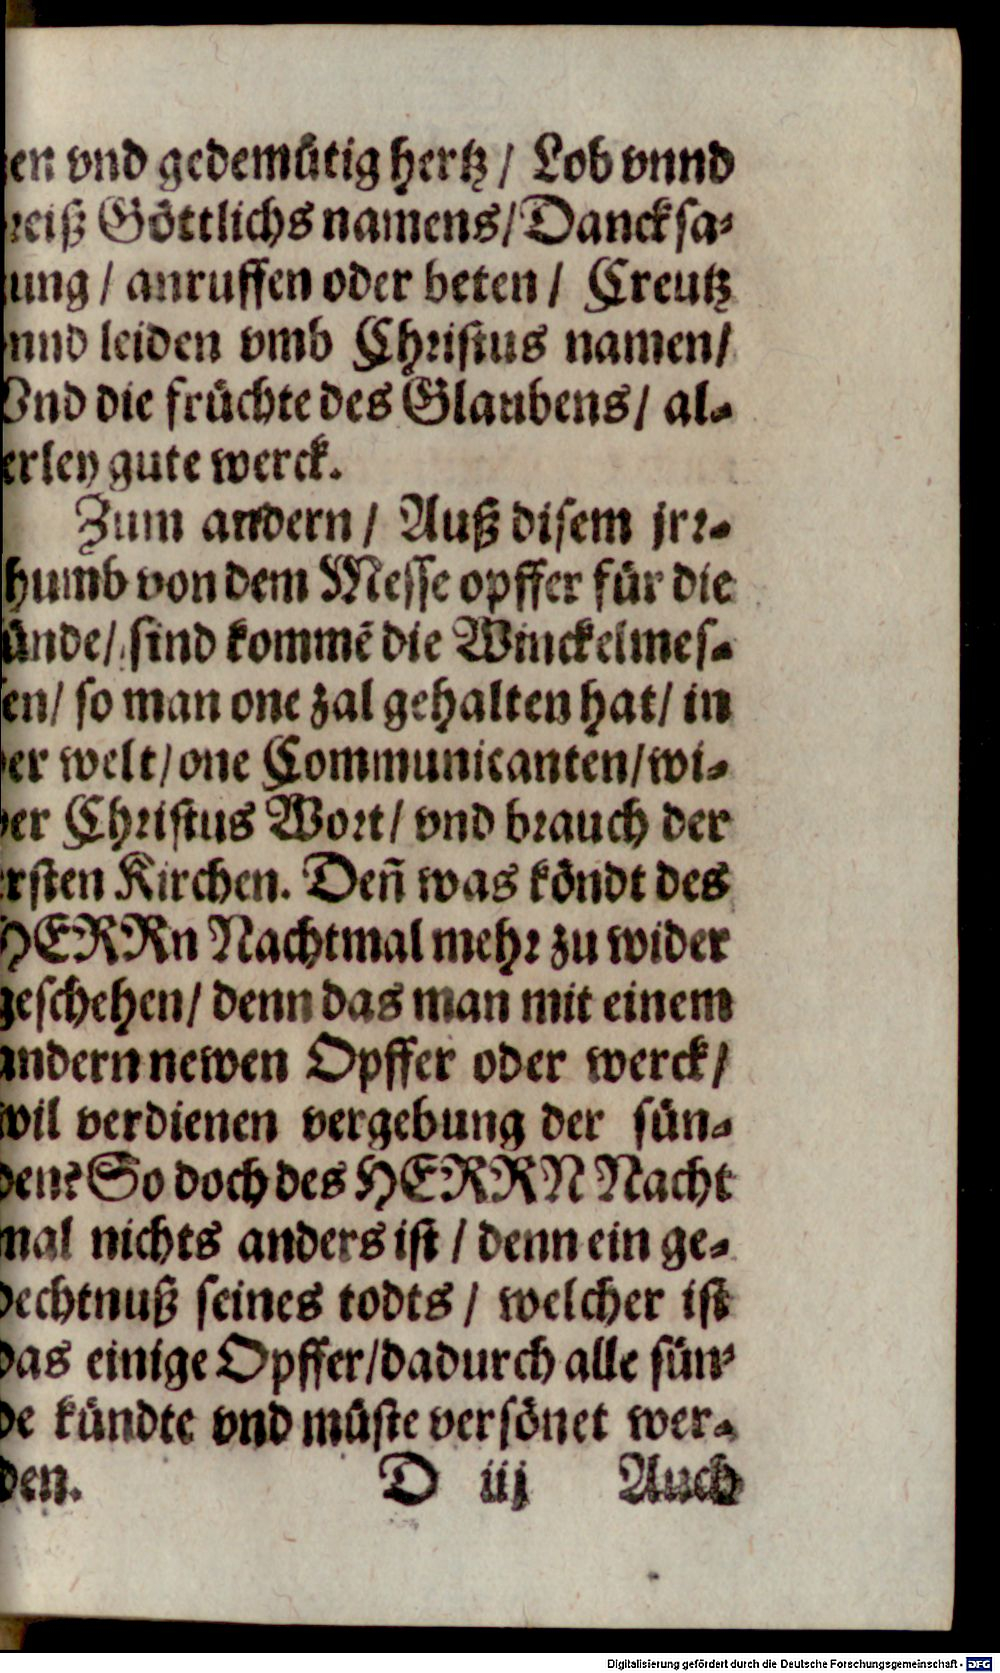 en vnd gedemütig hertz / Lob vnnd
reiß Göttlichs namens / Dancksa⸗
ung / anruffen oder beten / Creutz
nnd leiden vmb Christus namen /
Vnd die früchte des Glaubens / al⸗
erley gute werck.
Zum andern / Auß disem jrr⸗
humb von dem Messe opffer für die
ünde / sind kommē die Winckelmes⸗
en / so man one zal gehalten hat / in
er welt / one Communicanten / wi⸗
er Christus Wort / vnd brauch der
rsten Kirchen. Deñ was köndt des
HERRn Nachtmal mehr zu wider
geschehen / denn das man mit einem
andern newen Opffer oder werck /
wil verdienen vergebung der sün⸗
den? So doch des HERRN Nacht
mal nichts anders ist / denn ein ge⸗
dechtnuß seines todts / welcher ist
das einige Opffer / dadurch alle sün⸗
de kündte vnd müste versönet wer⸗
den. D iij Auch
Digitalisierung gefördert durch die Deutsche Forschungsgemeinschaft - DFG